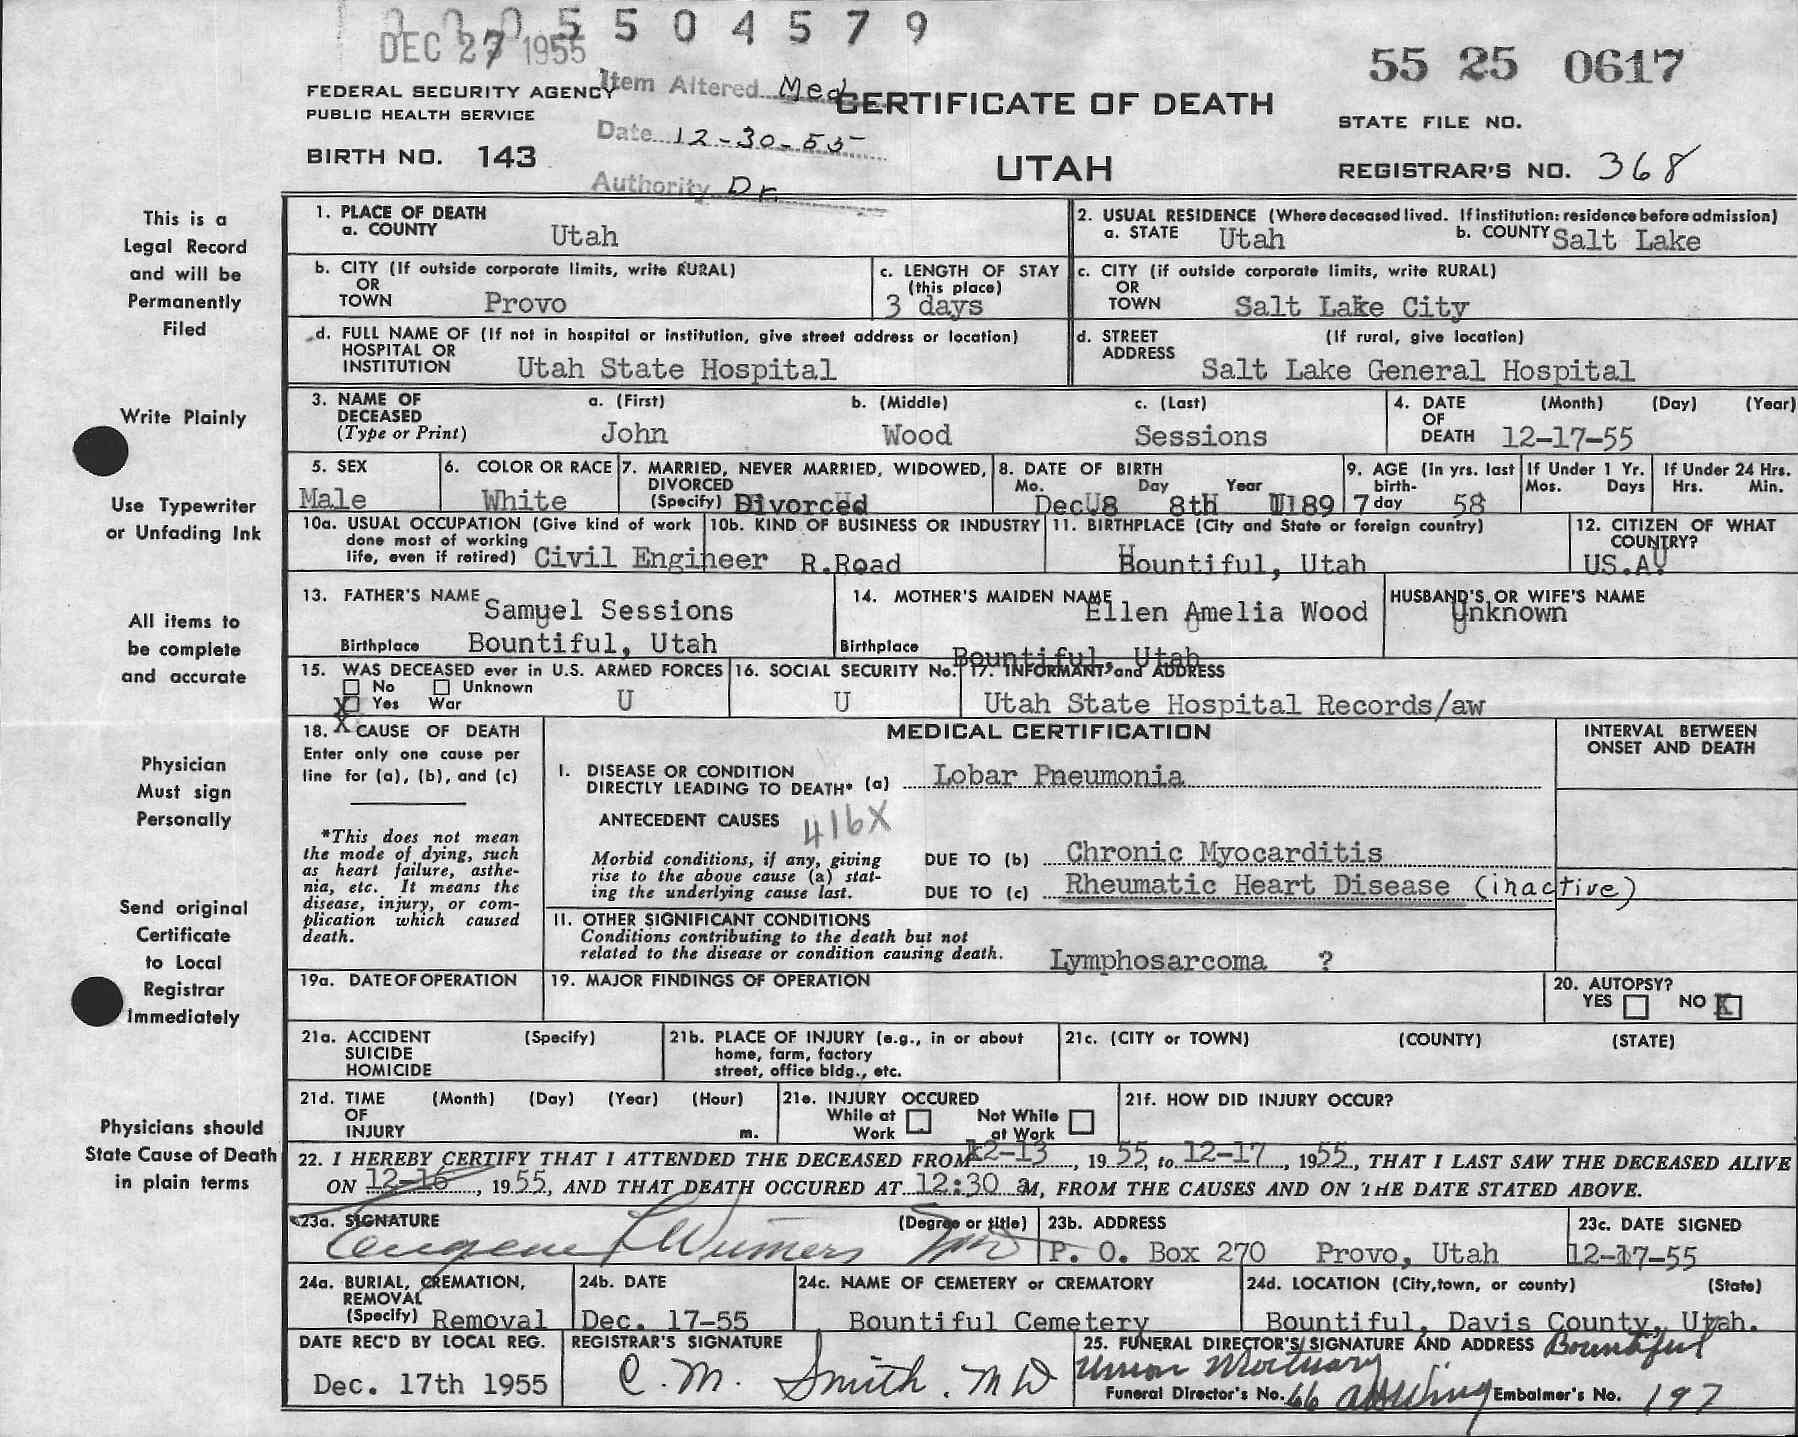 5 5 0 4 5 7 9
DEC 27 1955
55 25 0617
Item Altered Med
FEDERAL SECURITY AGENCY
PUBLIC HEALTH SERVICE
CERTIFICATE OF DEATH
STATE FILE NO.
Date 12-30-55
BIRTH NO. 143
UTAH
REGISTRAR'S NO. 368
Authority Dr.
This is a
Legal Record
and will be
Permanently
Filed
1. PLACE OF DEATH
a. COUNTY Utah
2. USUAL RESIDENCE (Where deceased lived. If institution: residence before admission)
a. STATE Utah b. COUNTY Salt Lake
b. CITY (If outside corporate limits, write RURAL)
OR
TOWN Provo
c. LENGTH OF STAY
(this place)
3 days
c. CITY (if outside corporate limits, write RURAL)
OR
TOWN Salt Lake City
d. FULL NAME OF (If not in hospital or institution, give street address or location)
HOSPITAL OR
INSTITUTION Utah State Hospital
d. STREET (If rural, give location)
ADDRESS
Salt Lake General Hospital
Write Plainly
3. NAME OF a. (First) b. (Middle) c. (Last)
DECEASED
(Type or Print) John Wood Sessions
4. DATE (Month) (Day) (Year)
OF
DEATH 12-17-55
Use Typewriter
or Unfading Ink
5. SEX
Male
6. COLOR OR RACE
White
7. MARRIED, NEVER MARRIED, WIDOWED,
DIVORCED
(Specify) Divorced
8. DATE OF BIRTH
Mo. Day Year
Dec 8th 1897
9. AGE (in yrs. last
birth-
day 58
If Under 1 Yr.
Mos. Days
If Under 24 Hrs.
Hrs. Min.
10a. USUAL OCCUPATION (Give kind of work
done most of working
life, even if retired) Civil Engineer
10b. KIND OF BUSINESS OR INDUSTRY
R.Road
11. BIRTHPLACE (City and State or foreign country)
Bountiful, Utah
12. CITIZEN OF WHAT
COUNTRY?
US.A
All items to
be complete
and accurate
13. FATHER'S NAME Samuel Sessions
Birthplace Bountiful, Utah
14. MOTHER'S MAIDEN NAME Ellen Amelia Wood
Birthplace Bountiful, Utah
HUSBAND'S OR WIFE'S NAME
Unknown
15. WAS DECEASED ever in U.S. ARMED FORCES
No Unknown
X Yes War U
16. SOCIAL SECURITY No.
U
17. INFORMANT and ADDRESS
Utah State Hospital Records/aw
Physician
Must sign
Personally
18. X CAUSE OF DEATH
Enter only one cause per
line for (a), (b), and (c)
*This does not mean
the mode of dying, such
as heart failure, asthe-
nia, etc. It means the
disease, injury, or com-
plication which caused
death.
MEDICAL CERTIFICATION
INTERVAL BETWEEN
ONSET AND DEATH
I. DISEASE OR CONDITION
DIRECTLY LEADING TO DEATH* (a) Lobar Pneumonia
ANTECEDENT CAUSES 416X
Morbid conditions, if any, giving
rise to the above cause (a) stat-
ing the underlying cause last.
DUE TO (b) Chronic Myocarditis
DUE TO (c) Rheumatic Heart Disease (inactive)
II. OTHER SIGNIFICANT CONDITIONS
Conditions contributing to the death but not
related to the disease or condition causing death.
Lymphosarcoma ?
Send original
Certificate
to Local
Registrar
Immediately
19a. DATE OF OPERATION
19. MAJOR FINDINGS OF OPERATION
20. AUTOPSY?
YES NO X
21a. ACCIDENT (Specify)
SUICIDE
HOMICIDE
21b. PLACE OF INJURY (e.g., in or about
home, farm, factory
street, office bldg., etc.
21c. (CITY or TOWN) (COUNTY) (STATE)
21d. TIME (Month) (Day) (Year) (Hour)
OF
INJURY m.
21e. INJURY OCCURED
While at Work
Not While at Work
21f. HOW DID INJURY OCCUR?
Physicians should
State Cause of Death
in plain terms
22. I HEREBY CERTIFY THAT I ATTENDED THE DECEASED FROM 12-13, 1955, to 12-17, 1955, THAT I LAST SAW THE DECEASED ALIVE
ON 12-16, 1955, AND THAT DEATH OCCURED AT 12:30 aM, FROM THE CAUSES AND ON THE DATE STATED ABOVE.
23a. SIGNATURE (Degree or title)
Eugene L Wiemers MD
23b. ADDRESS
P. O. Box 270 Provo, Utah
23c. DATE SIGNED
12-17-55
24a. BURIAL, CREMATION,
REMOVAL
(Specify) Removal
24b. DATE
Dec. 17-55
24c. NAME OF CEMETERY or CREMATORY
Bountiful Cemetery
24d. LOCATION (City, town, or county) (State)
Bountiful, Davis County, Utah.
DATE REC'D BY LOCAL REG.
Dec. 17th 1955
REGISTRAR'S SIGNATURE
C. M. Smith. MD
25. FUNERAL DIRECTOR'S SIGNATURE AND ADDRESS Bountiful
Union Mortuary
Funeral Director's No. 66 Embalmer's No. 197